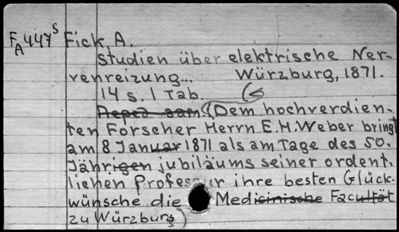 F A 447 S Fick, A.
Studien über elektrische Ner-
venreizung... Würzburg, 1871.
14 S. 1 Tab.
(Dem hochverdien-
ten Forscher Herrn E.H. Weber bringt
am 8 Januar 1871 als am Tage des 50-
Jährigen jubiläums seiner ordent-
lichen Professur ihre besten Glück-
wünsche die Medicinische Facultät
zu Würzburg)